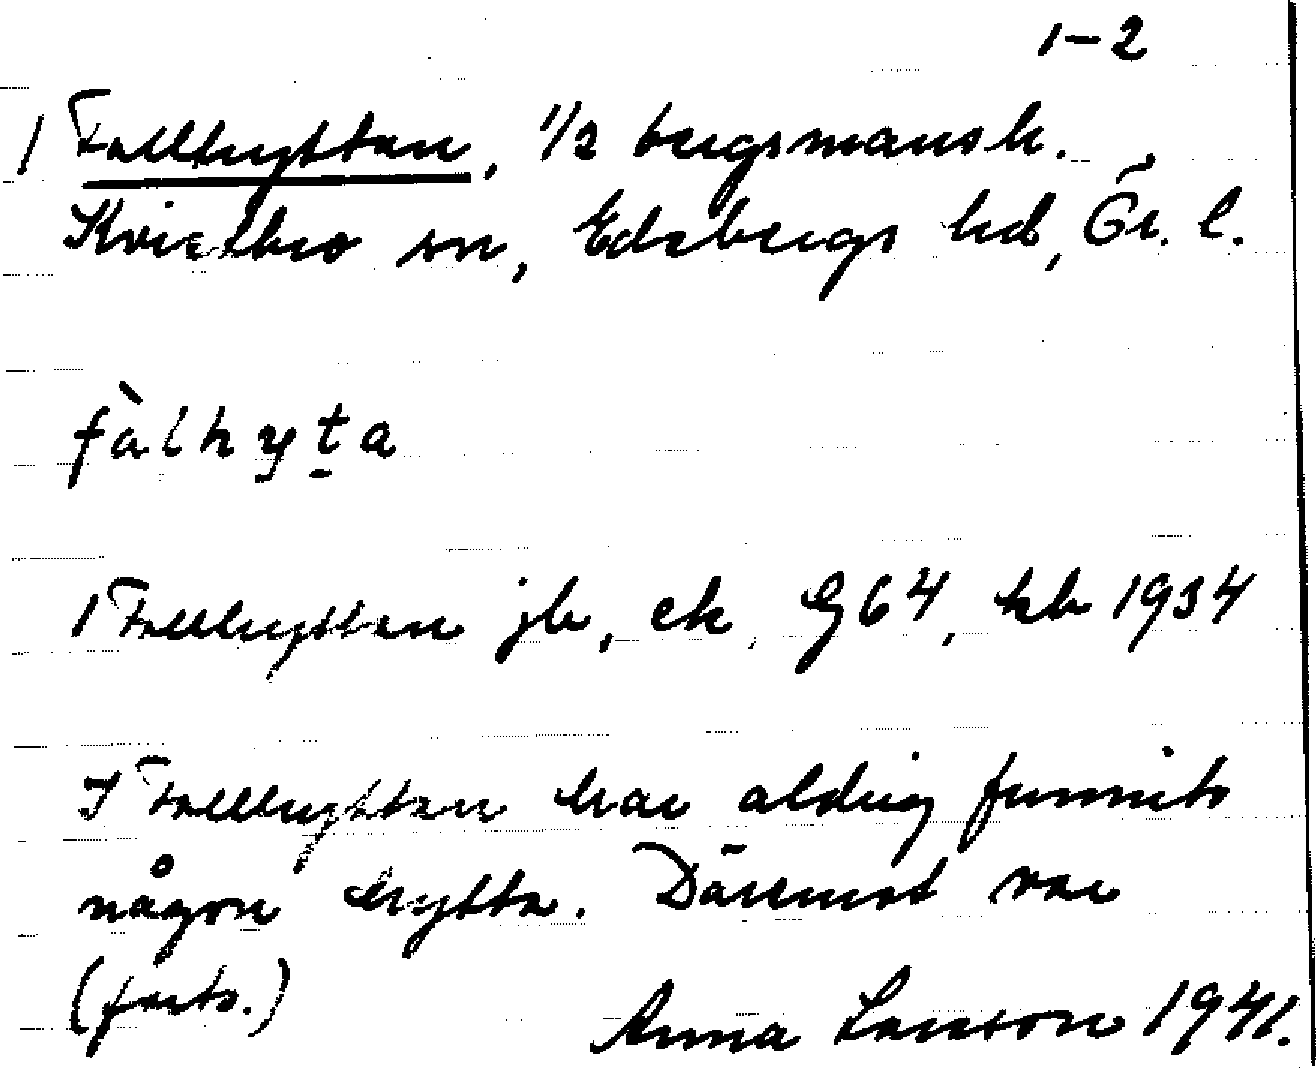 1-2
/ Fallhyttan, 1/2 bergsmansh.
Kvistbro sn, Edsbergs hd, Ör. l.
fàlhyṯa
/ Fallhyttan jb, ek, G64, kb 1934
I Fallhyttan har aldrig funnits
någon hytta. Däremot var
(forts.)
Anna Larsson 1941.